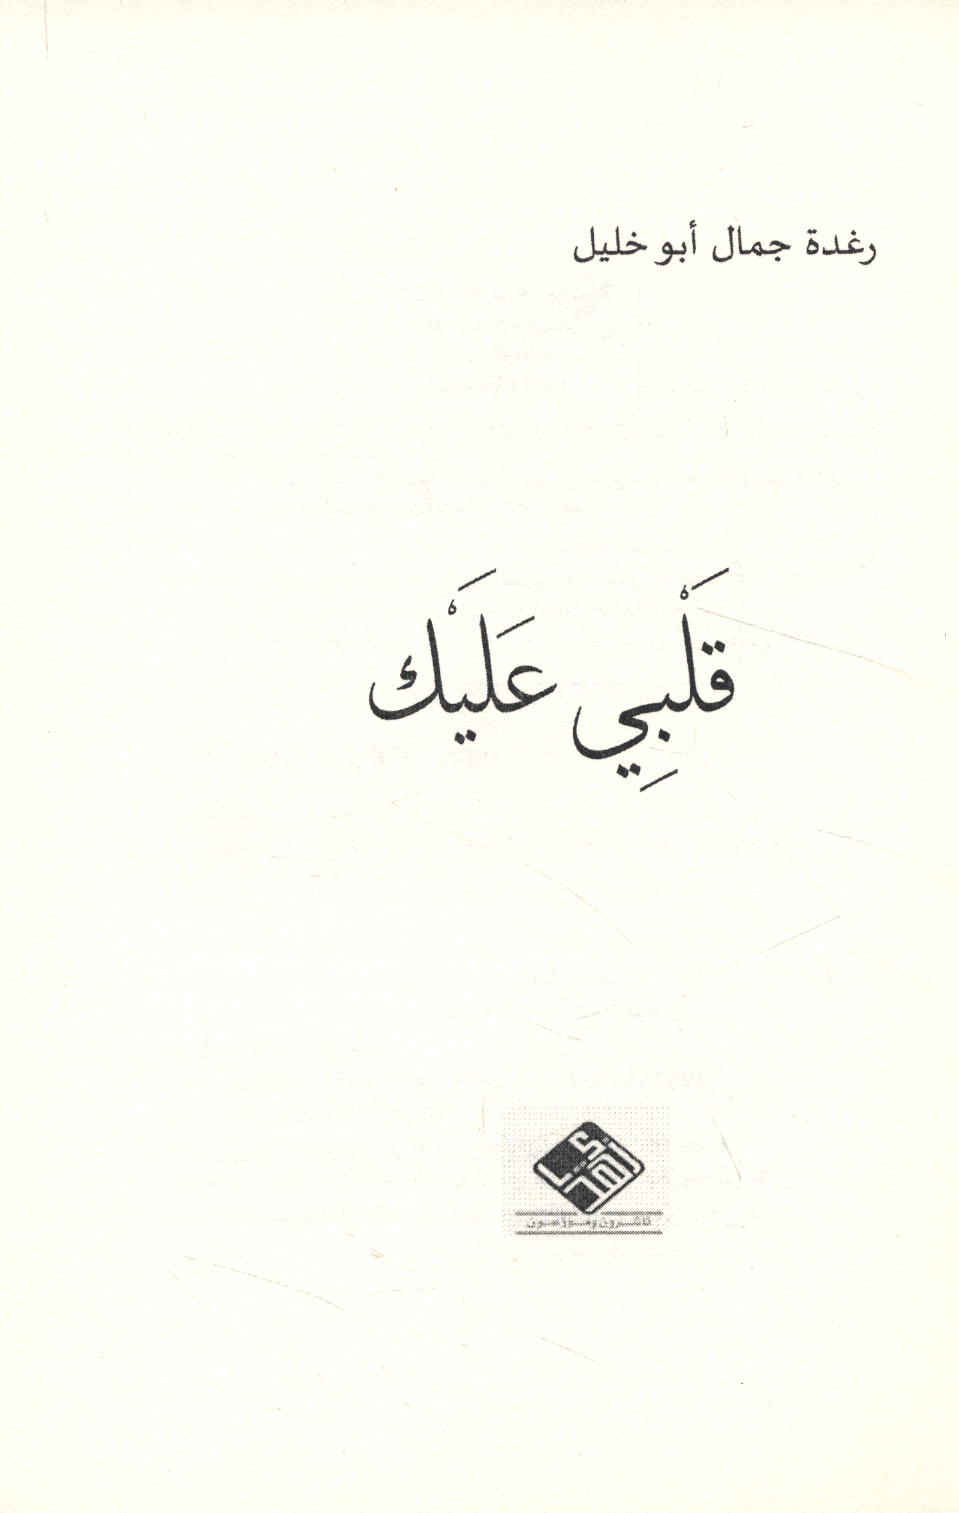 رغدة جمال أبو خليل
قَلْبِي عَلَيْكَ
ناشرون وموزعون